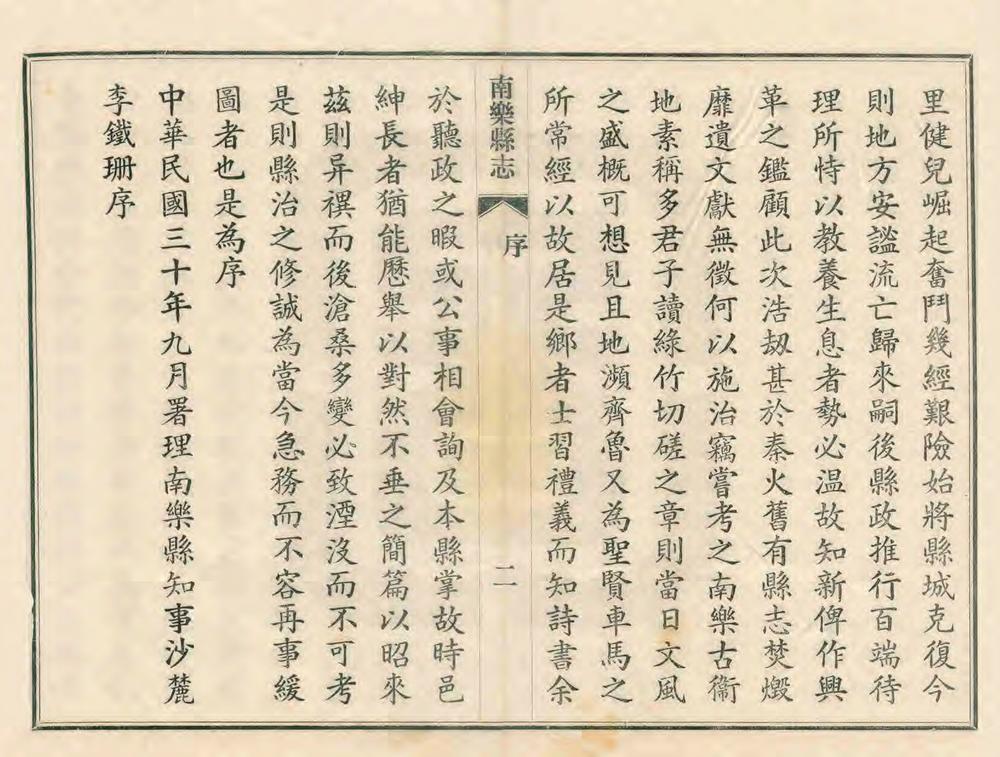 里健兒崛起奮鬥幾經艱險始將縣城克復今
則地方安謐流亡歸來嗣後縣政推行百端待
理所恃以教養生息者勢必温故知新俾作興
革之鑑顧此次浩劫甚於秦火舊有縣志焚燬
靡遺文獻無徵何以施治竊嘗考之南樂古衞
地素稱多君子讀綠竹切磋之章則當日文風
之盛概可想見且地瀕齊魯又為聖賢車馬之
所常經以故居是鄉者士習禮義而知詩書余
南樂縣志
序
二
於聽政之暇或公事相會詢及本縣掌故時邑
紳長者猶能歷舉以對然不垂之簡篇以昭來
茲則异禩而後滄桑多變必致湮沒而不可考
是則縣治之修誠為當今急務而不容再事緩
圖者也是為序
中華民國三十年九月署理南樂縣知事沙麓
李鐵珊序